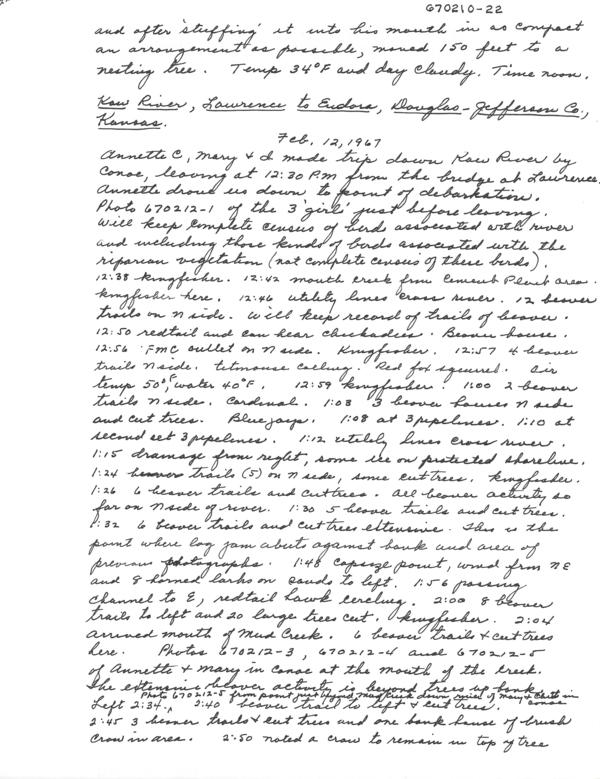 670210-22
and after 'stuffing' it into his mouth in as compact
an arrangement as possible, moved 150 feet to a
nesting tree. Temp 34°F and day cloudy. Time noon.
Kaw River, Lawrence to Eudora, Douglas-Jefferson Co.,
Kansas.
Feb. 12, 1967
Annette C, Mary & I made trip down Kaw River by
Canoe, leaving at 12:30 P.M from the bridge at Lawrence.
Annette drove us down to point of debarkation.
Photo 670212-1 of the 3 'girls' just before leaving.
Will keep complete census of birds associated with river
and including those kinds of birds associated with the
riparian vegetation (not complete census of these birds).
12:38 kingfisher. 12:42 mouth creek from Cement Plant area.
kingfisher here. 12:46 utility lines cross river. 12 beaver
trails on N side. Will keep record of trails of beaver.
12:50 redtail and can hear chickadees. Beaver house.
12:56 FMC outlet on N side. Kingfisher. 12:57 4 beaver
trails N side. titmouse calling. Red fox squirrel. Air
temp 50°F, water 40°F. 12:59 kingfisher. 1:00 2 beaver
trails N side. Cardinal. 1:03 3 beaver houses N side
and cut trees. Bluejays. 1:08 at 3 pipelines. 1:10 at
second set 3 pipelines. 1:12 utility lines cross river.
1:15 drainage from right, some ice on protected shoreline.
1:24 beaver trails (5) on N side, some cut trees. kingfisher.
1:26 6 beaver trails and cut trees. All beaver activity so
far on N side of river. 1:30 5 beaver trails and cut trees.
1:32 6 beaver trails and cut trees extensive. This is the
point where log jam abuts against bank and area of
previous photographs. 1:48 capsize point, wind from NE
and 8 horned larks on sands to left. 1:56 passing
channel to E, redtail hawk circling. 2:00 8 beaver
trails to left and 20 large trees cut. kingfisher. 2:04
arrived mouth of Mud Creek. 6 beaver trails & cut trees
here. Photos 670212-3, 670212-4 and 670212-5
of Annette & Mary in canoe at the mouth of the creek.
The extensive beaver activity is beyond trees up bank.
Photo 670212-5 from point just beyond Mud Creek down river of Mary & in canoe
Left 2:34. 2:40 beaver trail to left & cut trees.
2:45 3 beaver trails & cut trees and one bank house of brush
Crow in area. 2:50 noted a crow to remain in top of tree